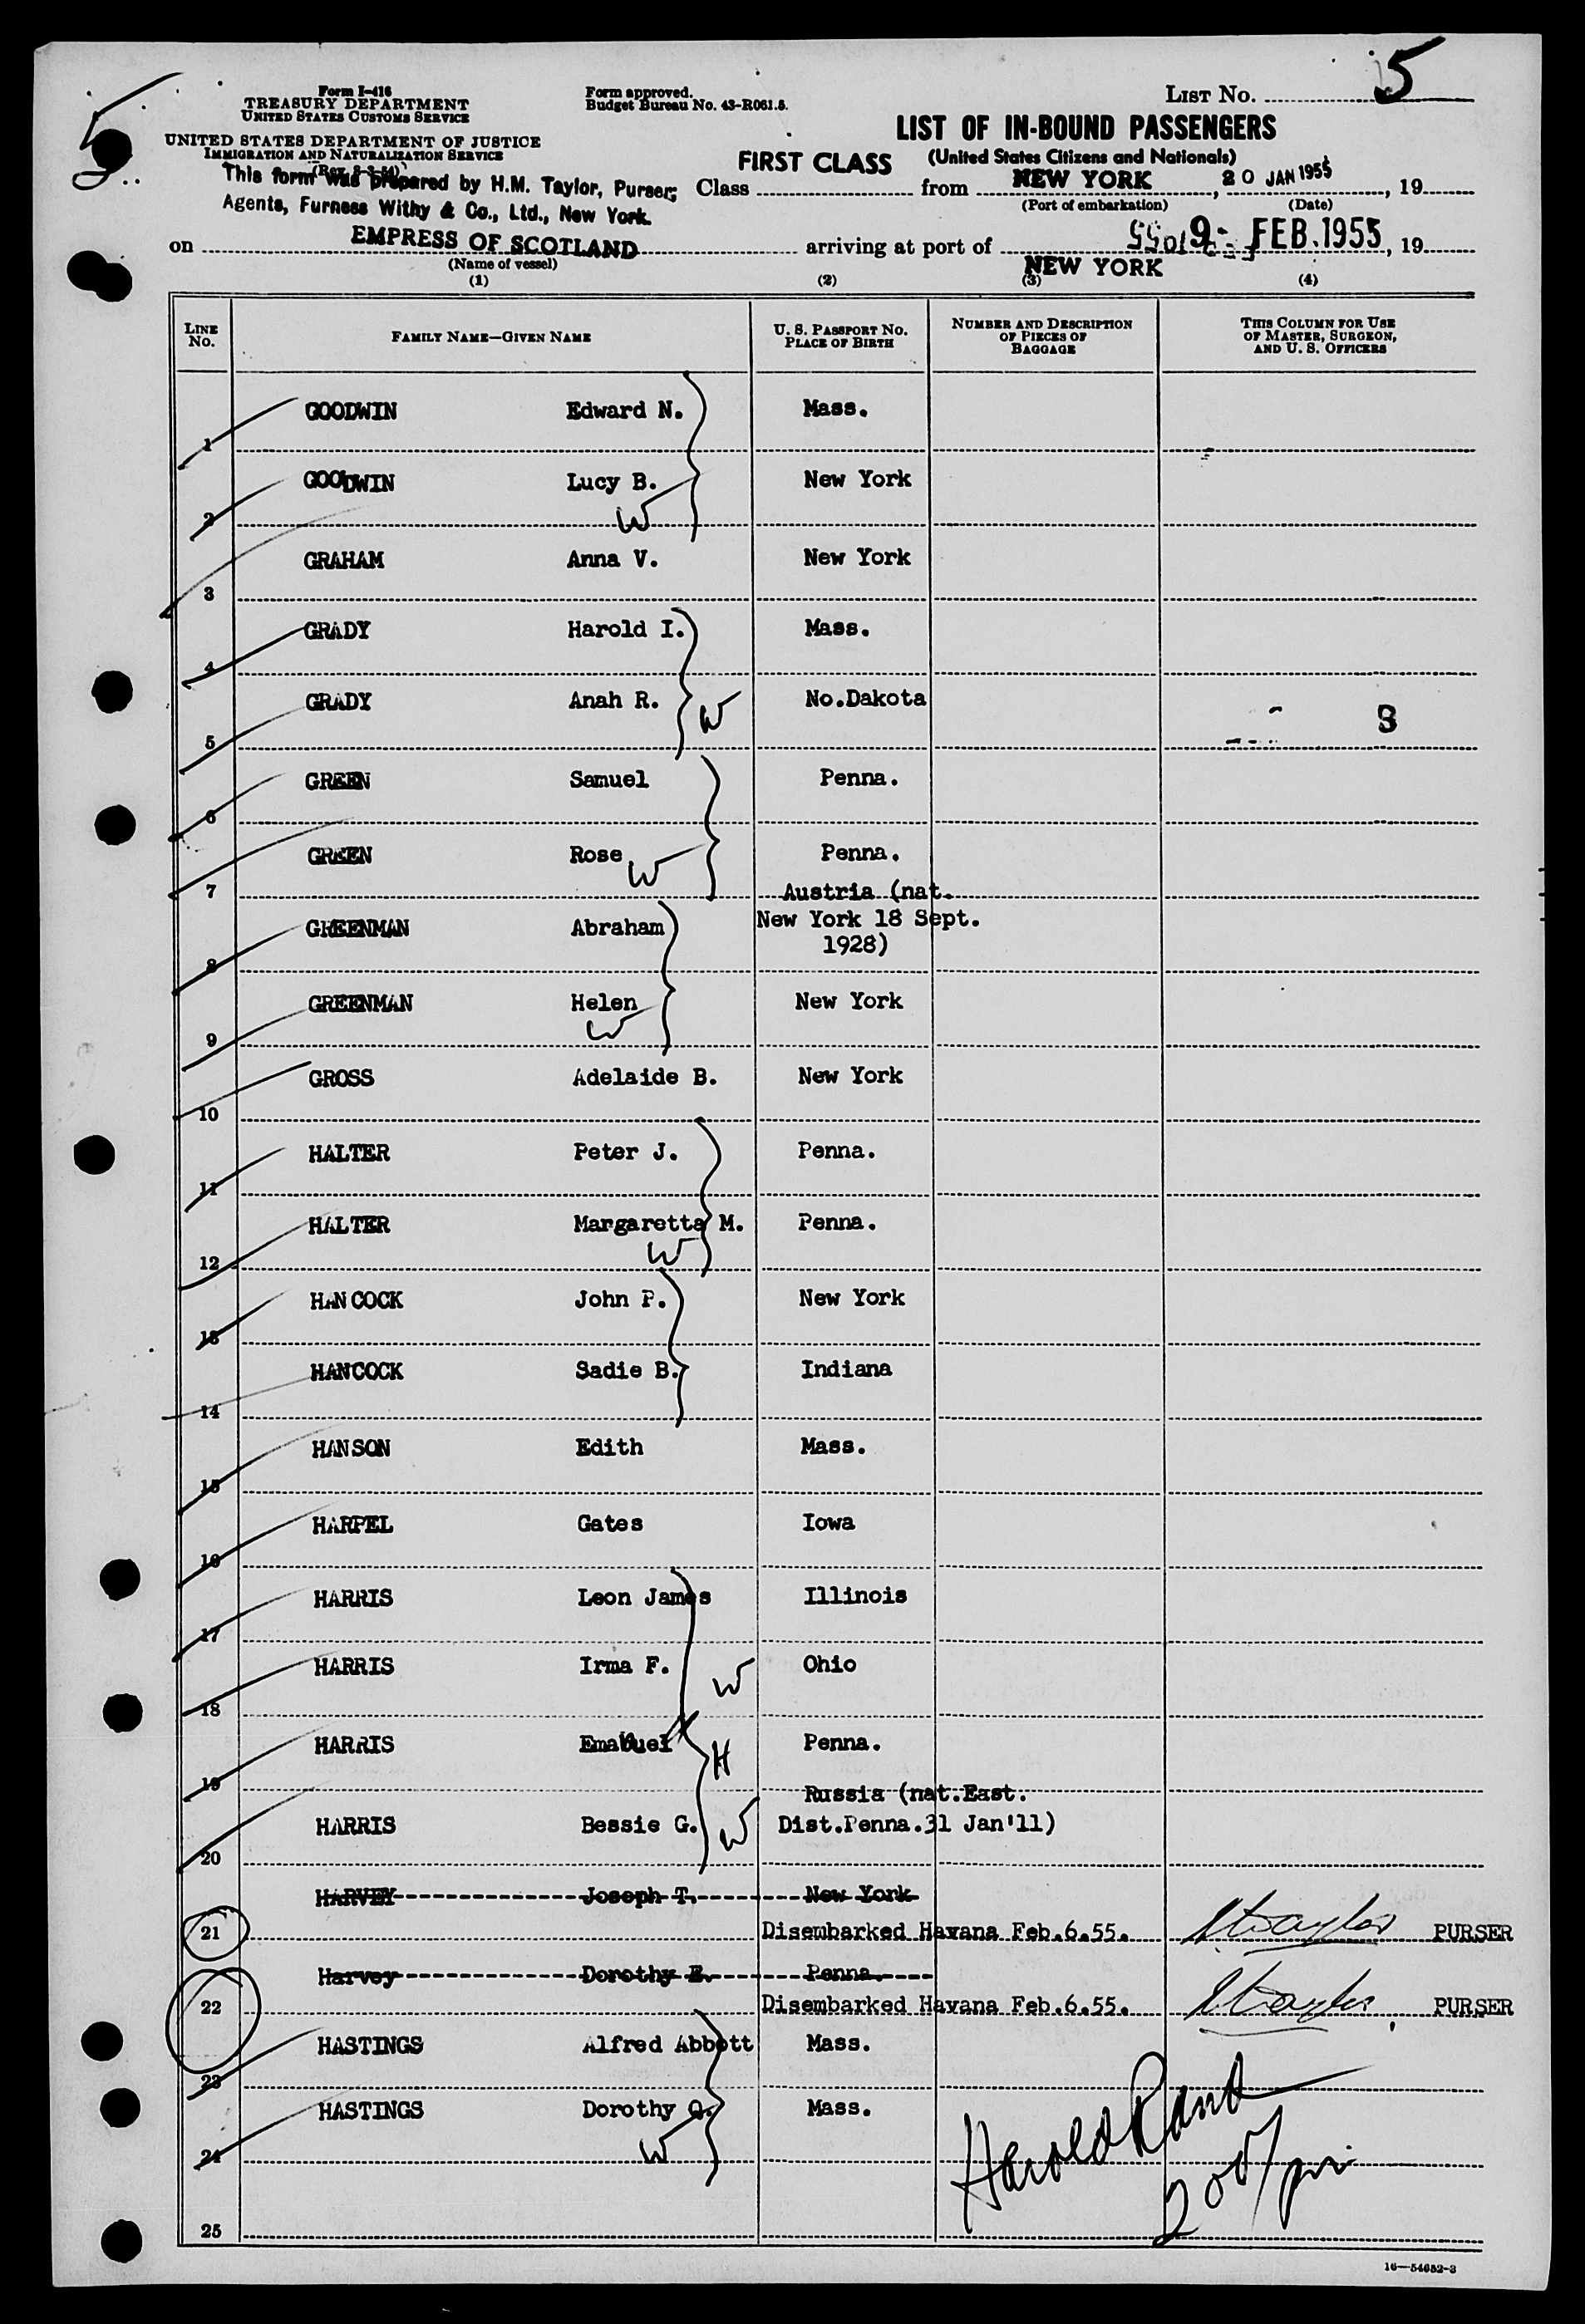 5
LIST NO. 5
Form I-416
TREASURY DEPARTMENT
UNITED STATES CUSTOMS SERVICE
Form approved.
Budget Bureau No. 43-R061.5.
UNITED STATES DEPARTMENT OF JUSTICE
IMMIGRATION AND NATURALIZATION SERVICE
LIST OF IN-BOUND PASSENGERS
(United States Citizens and Nationals)
This form was prepared by H.M. Taylor, Purser;
Agents, Furness Withy & Co., Ltd., New York.
FIRST CLASS
Class from NEW YORK, 20 JAN 1955, 19
(Port of embarkation) (Date)
on EMPRESS OF SCOTLAND arriving at port of 9 - FEB. 1955, 19
(Name of vessel) NEW YORK
(1) (2) (3) (4)
LINE NO. FAMILY NAME—GIVEN NAME U. S. PASSPORT NO. PLACE OF BIRTH NUMBER AND DESCRIPTION OF PIECES OF BAGGAGE THIS COLUMN FOR USE OF MASTER, SURGEON, AND U. S. OFFICERS
1 GOODWIN Edward N. Mass.
2 GOODWIN Lucy B. W New York
3 GRAHAM Anna V. New York
4 GRADY Harold I. Mass.
5 GRADY Anah R. W No.Dakota
6 GREEN Samuel Penna.
7 GREEN Rose W Penna.
8 GREENMAN Abraham Austria (nat. New York 18 Sept. 1928)
9 GREENMAN Helen W New York
10 GROSS Adelaide B. New York
11 HALTER Peter J. Penna.
12 HALTER Margaretta M. W Penna.
13 HANCOCK John P. New York
14 HANCOCK Sadie B. Indiana
15 HANSON Edith Mass.
16 HARPEL Gates Iowa
17 HARRIS Leon James Illinois
18 HARRIS Irma F. W Ohio
19 HARRIS Emanuel H Penna.
20 HARRIS Bessie G. W Russia (nat.East. Dist.Penna.31 Jan'11)
21 HARVEY Joseph T. New York
Disembarked Havana Feb.6.55. HTaylor PURSER
22 Harvey Dorothy E. Penna.
Disembarked Havana Feb.6.55. HTaylor PURSER
23 HASTINGS Alfred Abbott Mass.
24 HASTINGS Dorothy Q. W Mass.
Harold Rand
25
16—54652-3